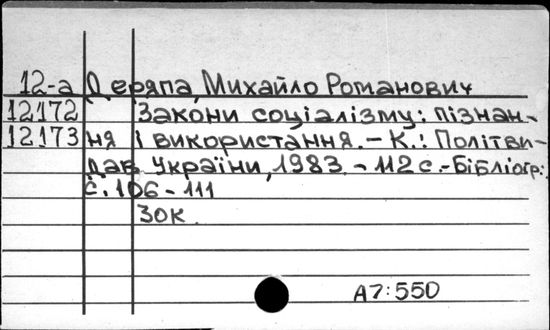 12-а Деряпа, Михайло Романович
12172 Закони соціалізму: пізнан-
12173 ня і використання. – К.: Політви-
дав України, 1983. – 112 с. – Бібліогр.:
с. 106 – 111
30к.
А7:550